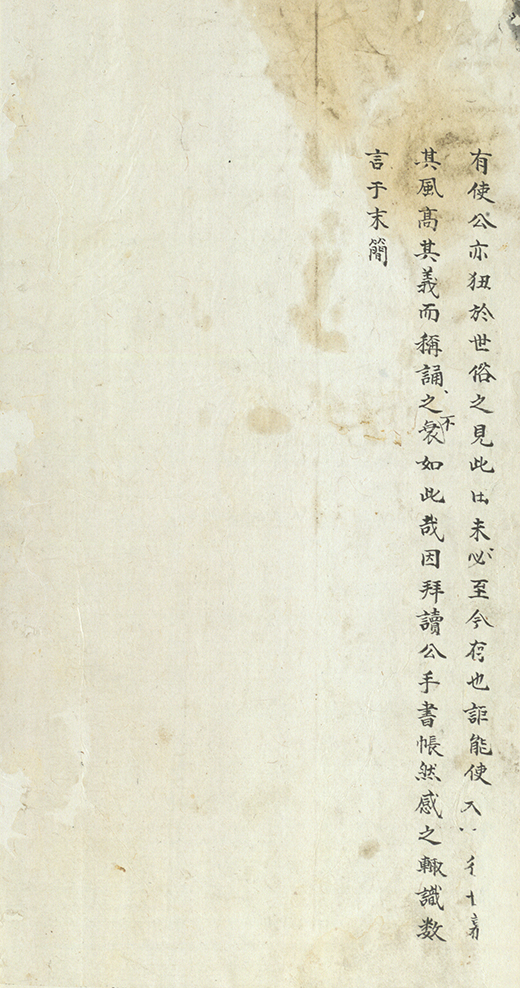 有使公亦狃於世俗之見此 未必至今存也詎能使人
其風高其義而稱誦之不衰如此哉因拜讀公手書悵然感之輒識数
言于末簡